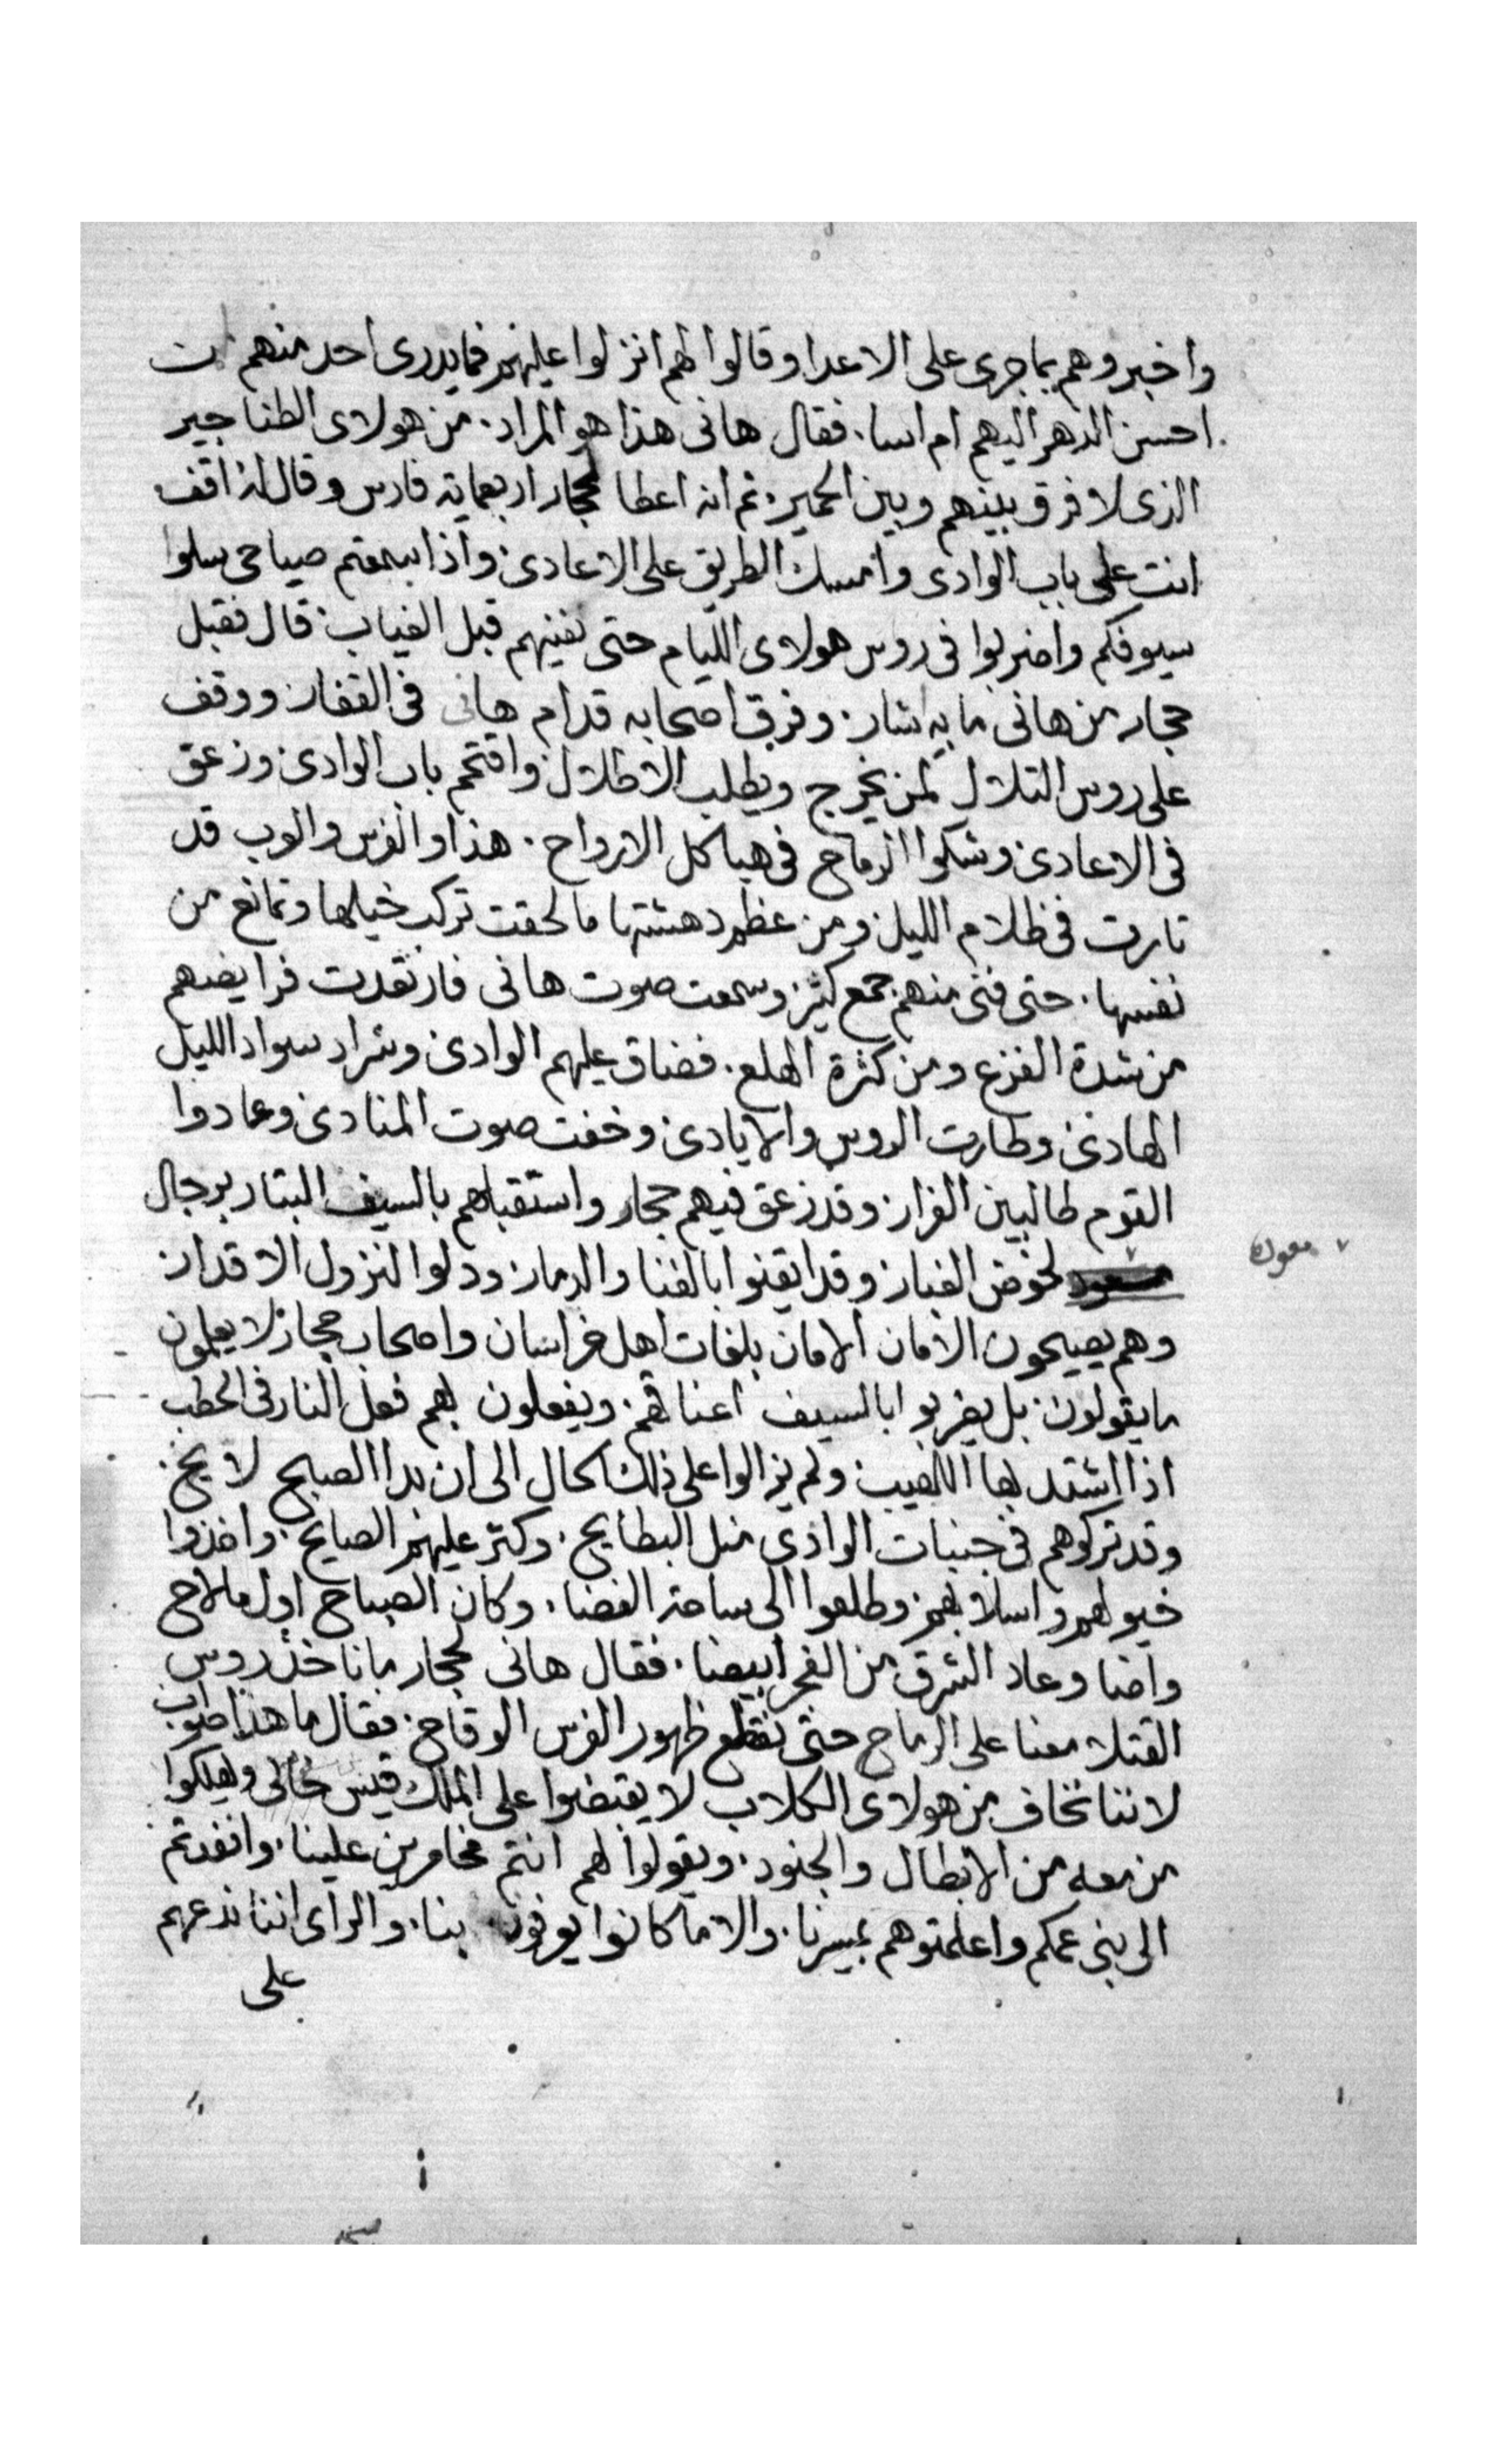 واخبروهم بما جرى على الاعدا وقالوا لهم انزلوا عليهم فما يدرى احد منهم
احسن الدهر اليهم ام اسا. فقال هانى هذا هو المراد. من هولاى الطناجير
الذى لا فرق بينهم وبين الحمير. تم انه اعطا لحجار اربعماية فارس وقال له اقف
انت على باب الوادى وامسك الطريق على الاعادى. واذا سمعتم صياحى سلوا
سيوفكم واضربوا فى روس هولاى الليام حتى نفنيهم قبل الغياب. قال فقبل
حجار من هانى ما به اشار. وفرق اصحابه قدام هانى فى القفار. ووقف
على روس التلال لمن يخرج ويطلب الاطلال. واقتحم باب الوادى وزعق
فى الاعادى وشكوا الرماح فى هياكل الارواح. هذا والفرس والعرب قد
تارت فى ظلام الليل ومن عظم دهشتها ما لحقت تركب خيلها وتمانع عن
نفسها. حتى فنى منهم جمع كثير. وسمعت صوت هانى فارتعدت فرايضهم
من شدة الفزع ومن كثرة الهلع. فضاق عليهم الوادى وشراد سواد الليل
الهادى وطارت الروس والايادى وخفت صوت المنادى وعادوا
القوم طالبين الفرار. وقد زعق فيهم حجار واستقبلهم بالسيف البتار برجال
معوده لخوض الغبار وقد ايقنوا بالفنا والدمار. وذلوا لنزول الاقدار
وهم يصيحون الامان الامان بلغات اهل خراسان واصحاب حجار لا يعلمون
ما يقولون. بل يضربوا بالسيف اعناقهم. ويفعلون بهم فعل النار فى الحطب
اذا اشتد بها اللهيب ولم يزالوا على ذلك الحال الى ان بدا الصبح لايح.
وقد تركوهم فى جنبات الوادى متل البطايح. وكتر عليهم الصايح. واخذوا
خيولهم واسلابهم. وطلعوا الى ساحة الفضا. وكان الصباح اول ما لاح
واضا وعاد الشرق من الفجر ابيضا. فقال هانى لحجار ما ناخذ روس
القتلا معنا على الرماح حتى نقطع ظهور الفرس الوقاح. فقال ما هذا صواب
لاننا نخاف من هولاى الكلاب لا يقبضوا على الملك قيس خالى ويهلكوا
من معه من الابطال والجنود. ويقولوا لهم انتم مخامرين علينا. وانفدتم
الى بنى عمكم واعلمتوهم بمسيرنا. والا ما كانوا بنا. والراى اننا ندعهم
على